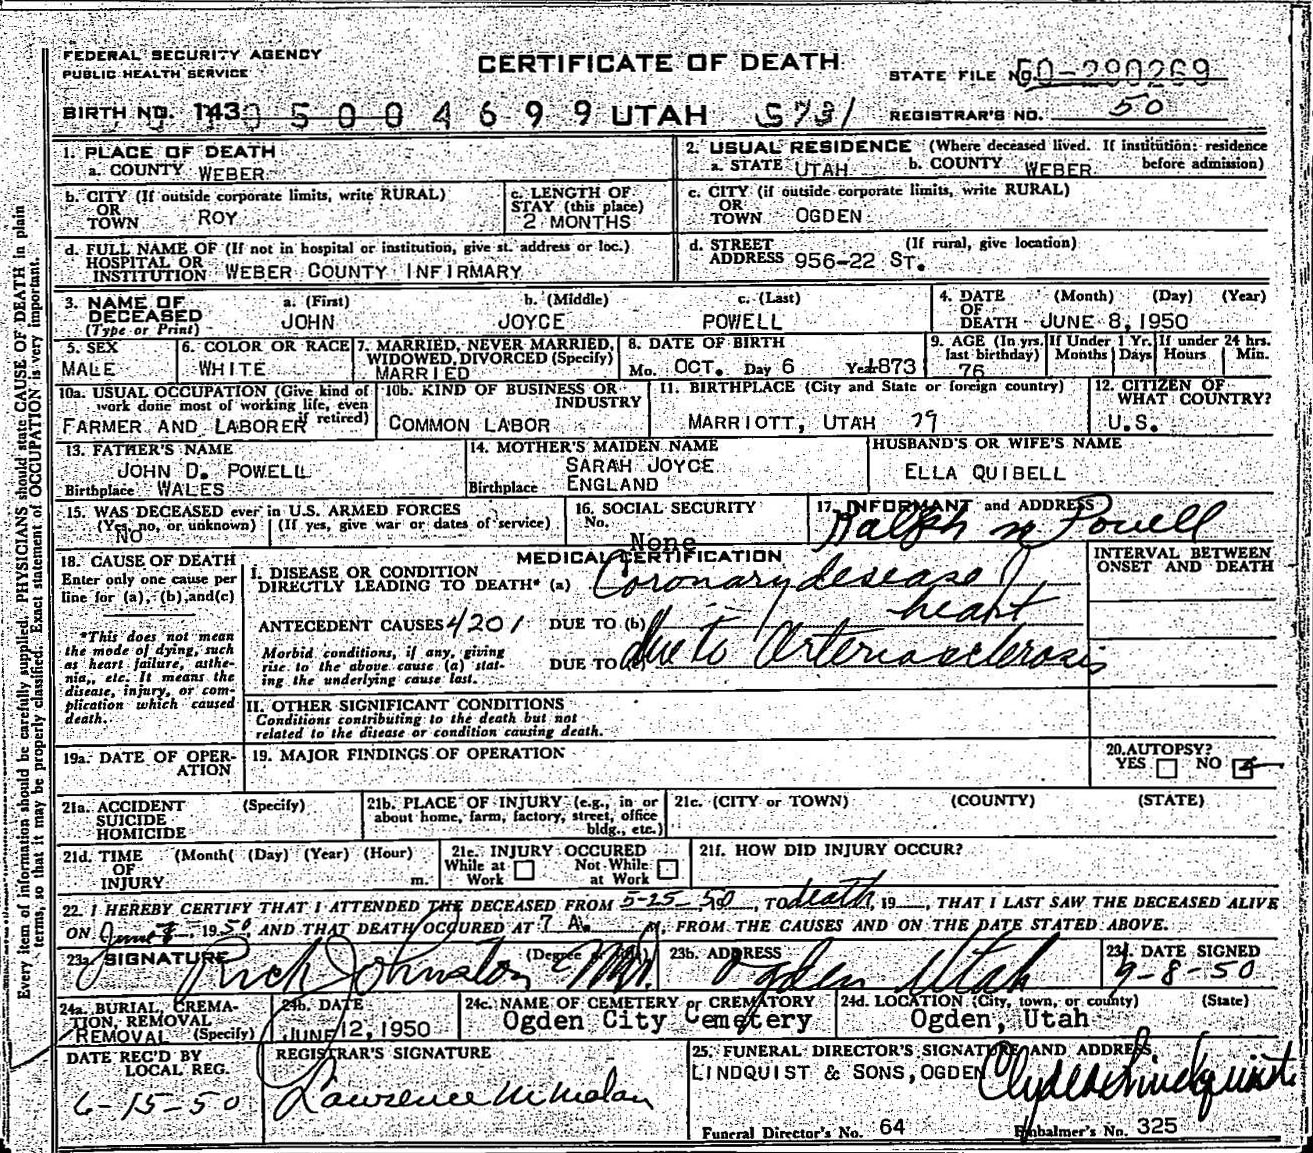 FEDERAL SECURITY AGENCY
PUBLIC HEALTH SERVICE
CERTIFICATE OF DEATH
STATE FILE NO. 50-290269
BIRTH NO. 143 0 5 0 0 4 6 9 9 UTAH S731
REGISTRAR'S NO. 50
1. PLACE OF DEATH
a. COUNTY WEBER
2. USUAL RESIDENCE (Where deceased lived. If institution: residence before admission)
a. STATE UTAH b. COUNTY WEBER
b. CITY (If outside corporate limits, write RURAL)
OR
TOWN ROY
c. LENGTH OF
STAY (this place)
2 MONTHS
c. CITY (if outside corporate limits, write RURAL)
OR
TOWN OGDEN
d. FULL NAME OF (If not in hospital or institution, give st. address or loc.)
HOSPITAL OR
INSTITUTION WEBER COUNTY INFIRMARY
d. STREET (If rural, give location)
ADDRESS 956-22 ST.
3. NAME OF
DECEASED
(Type or Print)
a. (First) b. (Middle) c. (Last)
JOHN JOYCE POWELL
4. DATE (Month) (Day) (Year)
OF
DEATH JUNE 8, 1950
5. SEX
MALE
6. COLOR OR RACE
WHITE
7. MARRIED, NEVER MARRIED,
WIDOWED, DIVORCED (Specify)
MARRIED
8. DATE OF BIRTH
Mo. OCT. Day 6 Year 1873
9. AGE (In yrs. last birthday)
76
If Under 1 Yr.
Months Days
If under 24 hrs.
Hours Min.
10a. USUAL OCCUPATION (Give kind of
work done most of working life, even
if retired)
FARMER AND LABORER
10b. KIND OF BUSINESS OR
INDUSTRY
COMMON LABOR
11. BIRTHPLACE (City and State or foreign country)
MARRIOTT, UTAH 79
12. CITIZEN OF
WHAT COUNTRY?
U.S.
13. FATHER'S NAME
JOHN D. POWELL
Birthplace WALES
14. MOTHER'S MAIDEN NAME
SARAH JOYCE
Birthplace ENGLAND
HUSBAND'S OR WIFE'S NAME
ELLA QUIBELL
15. WAS DECEASED ever in U.S. ARMED FORCES
(Yes, no, or unknown) (If yes, give war or dates of service)
NO
16. SOCIAL SECURITY
No.
None
17. INFORMANT and ADDRESS
Ralph M Powell
18. CAUSE OF DEATH
Enter only one cause per
line for (a), (b), and (c)
*This does not mean
the mode of dying, such
as heart failure, asthe-
nia, etc. It means the
disease, injury, or com-
plication which caused
death.
MEDICAL CERTIFICATION
I. DISEASE OR CONDITION
DIRECTLY LEADING TO DEATH* (a) Coronary disease of
heart
ANTECEDENT CAUSES 4201 DUE TO (b)
Morbid conditions, if any, giving
rise to the above cause (a) stat-
ing the underlying cause last.
DUE TO (c) due to Arteriosclerosis
INTERVAL BETWEEN
ONSET AND DEATH
II. OTHER SIGNIFICANT CONDITIONS
Conditions contributing to the death but not
related to the disease or condition causing death.
19a. DATE OF OPER-
ATION
19. MAJOR FINDINGS OF OPERATION
20. AUTOPSY?
YES NO
21a. ACCIDENT (Specify)
SUICIDE
HOMICIDE
21b. PLACE OF INJURY (e.g., in or
about home, farm, factory, street, office
bldg., etc.)
21c. (CITY or TOWN) (COUNTY) (STATE)
21d. TIME (Month( (Day) (Year) (Hour)
OF
INJURY m.
21e. INJURY OCCURED
While at Work Not While at Work
21f. HOW DID INJURY OCCUR?
22. I HEREBY CERTIFY THAT I ATTENDED THE DECEASED FROM 5-25-50, TO death, 19__, THAT I LAST SAW THE DECEASED ALIVE
ON June 7, 1950, AND THAT DEATH OCCURED AT 7 A. M, FROM THE CAUSES AND ON THE DATE STATED ABOVE.
23a. SIGNATURE (Degree or title)
Rich Johnston M.D.
23b. ADDRESS
Ogden Utah
23c. DATE SIGNED
9-8-50
24a. BURIAL, CREMA-
TION, REMOVAL
REMOVAL (Specify)
24b. DATE
JUNE 12, 1950
24c. NAME OF CEMETERY or CREMATORY
Ogden City Cemetery
24d. LOCATION (City, town, or county) (State)
Ogden, Utah
DATE REC'D BY
LOCAL REG.
6-15-50
REGISTRAR'S SIGNATURE
Lawrence M Malan
25. FUNERAL DIRECTOR'S SIGNATURE AND ADDRESS
LINDQUIST & SONS, OGDEN Clyde Lindquist
Funeral Director's No. 64 Embalmer's No. 325
Every item of information should be carefully supplied. PHYSICIANS should state CAUSE OF DEATH in plain
terms, so that it may be properly classified. Exact statement of OCCUPATION is very important.